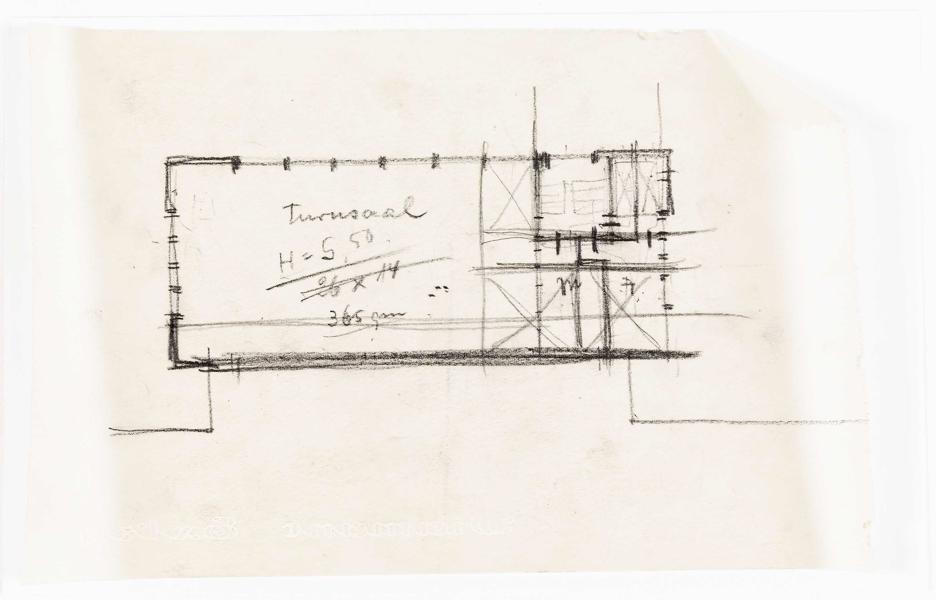 Turnsaal
H = 5,50.
26 x 14
365 qm
M